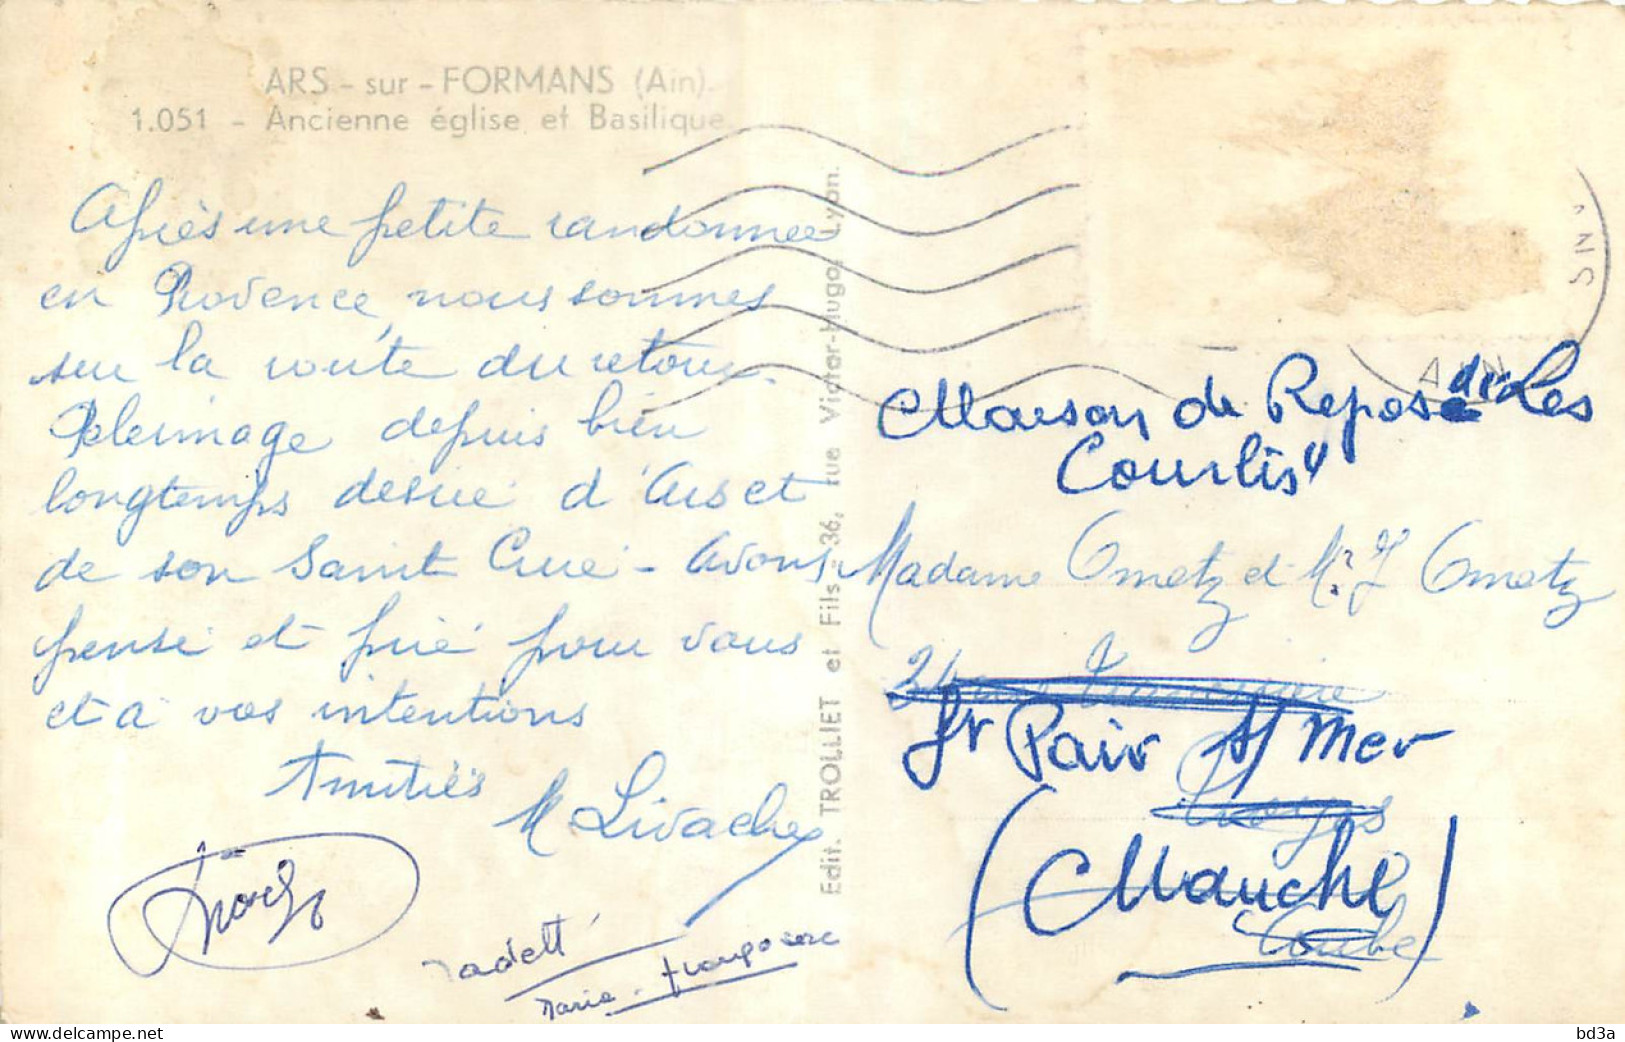 ARS - sur - FORMANS (Ain)
1.051 - Ancienne église et Basilique
Après une petite randonnée
en Provence, nous sommes
sur la route du retour.
Pelerinage depuis bien
longtemps desiré d'Ars et
de son Saint Curé - Avons
pensé et prié pour vous
et à vos intentions
Amitiés
M Livache
Marie-Françoise
Edit. TROLLIET et Fils - 36, rue Victor-Hugo, Lyon.
AIN
Maison de Repos "Les
Courlis"
Madame Ometz et Mr J Ometz
24 rue
St Pair s/ Mer
Troyes
(Manche)
Aube
bd3a